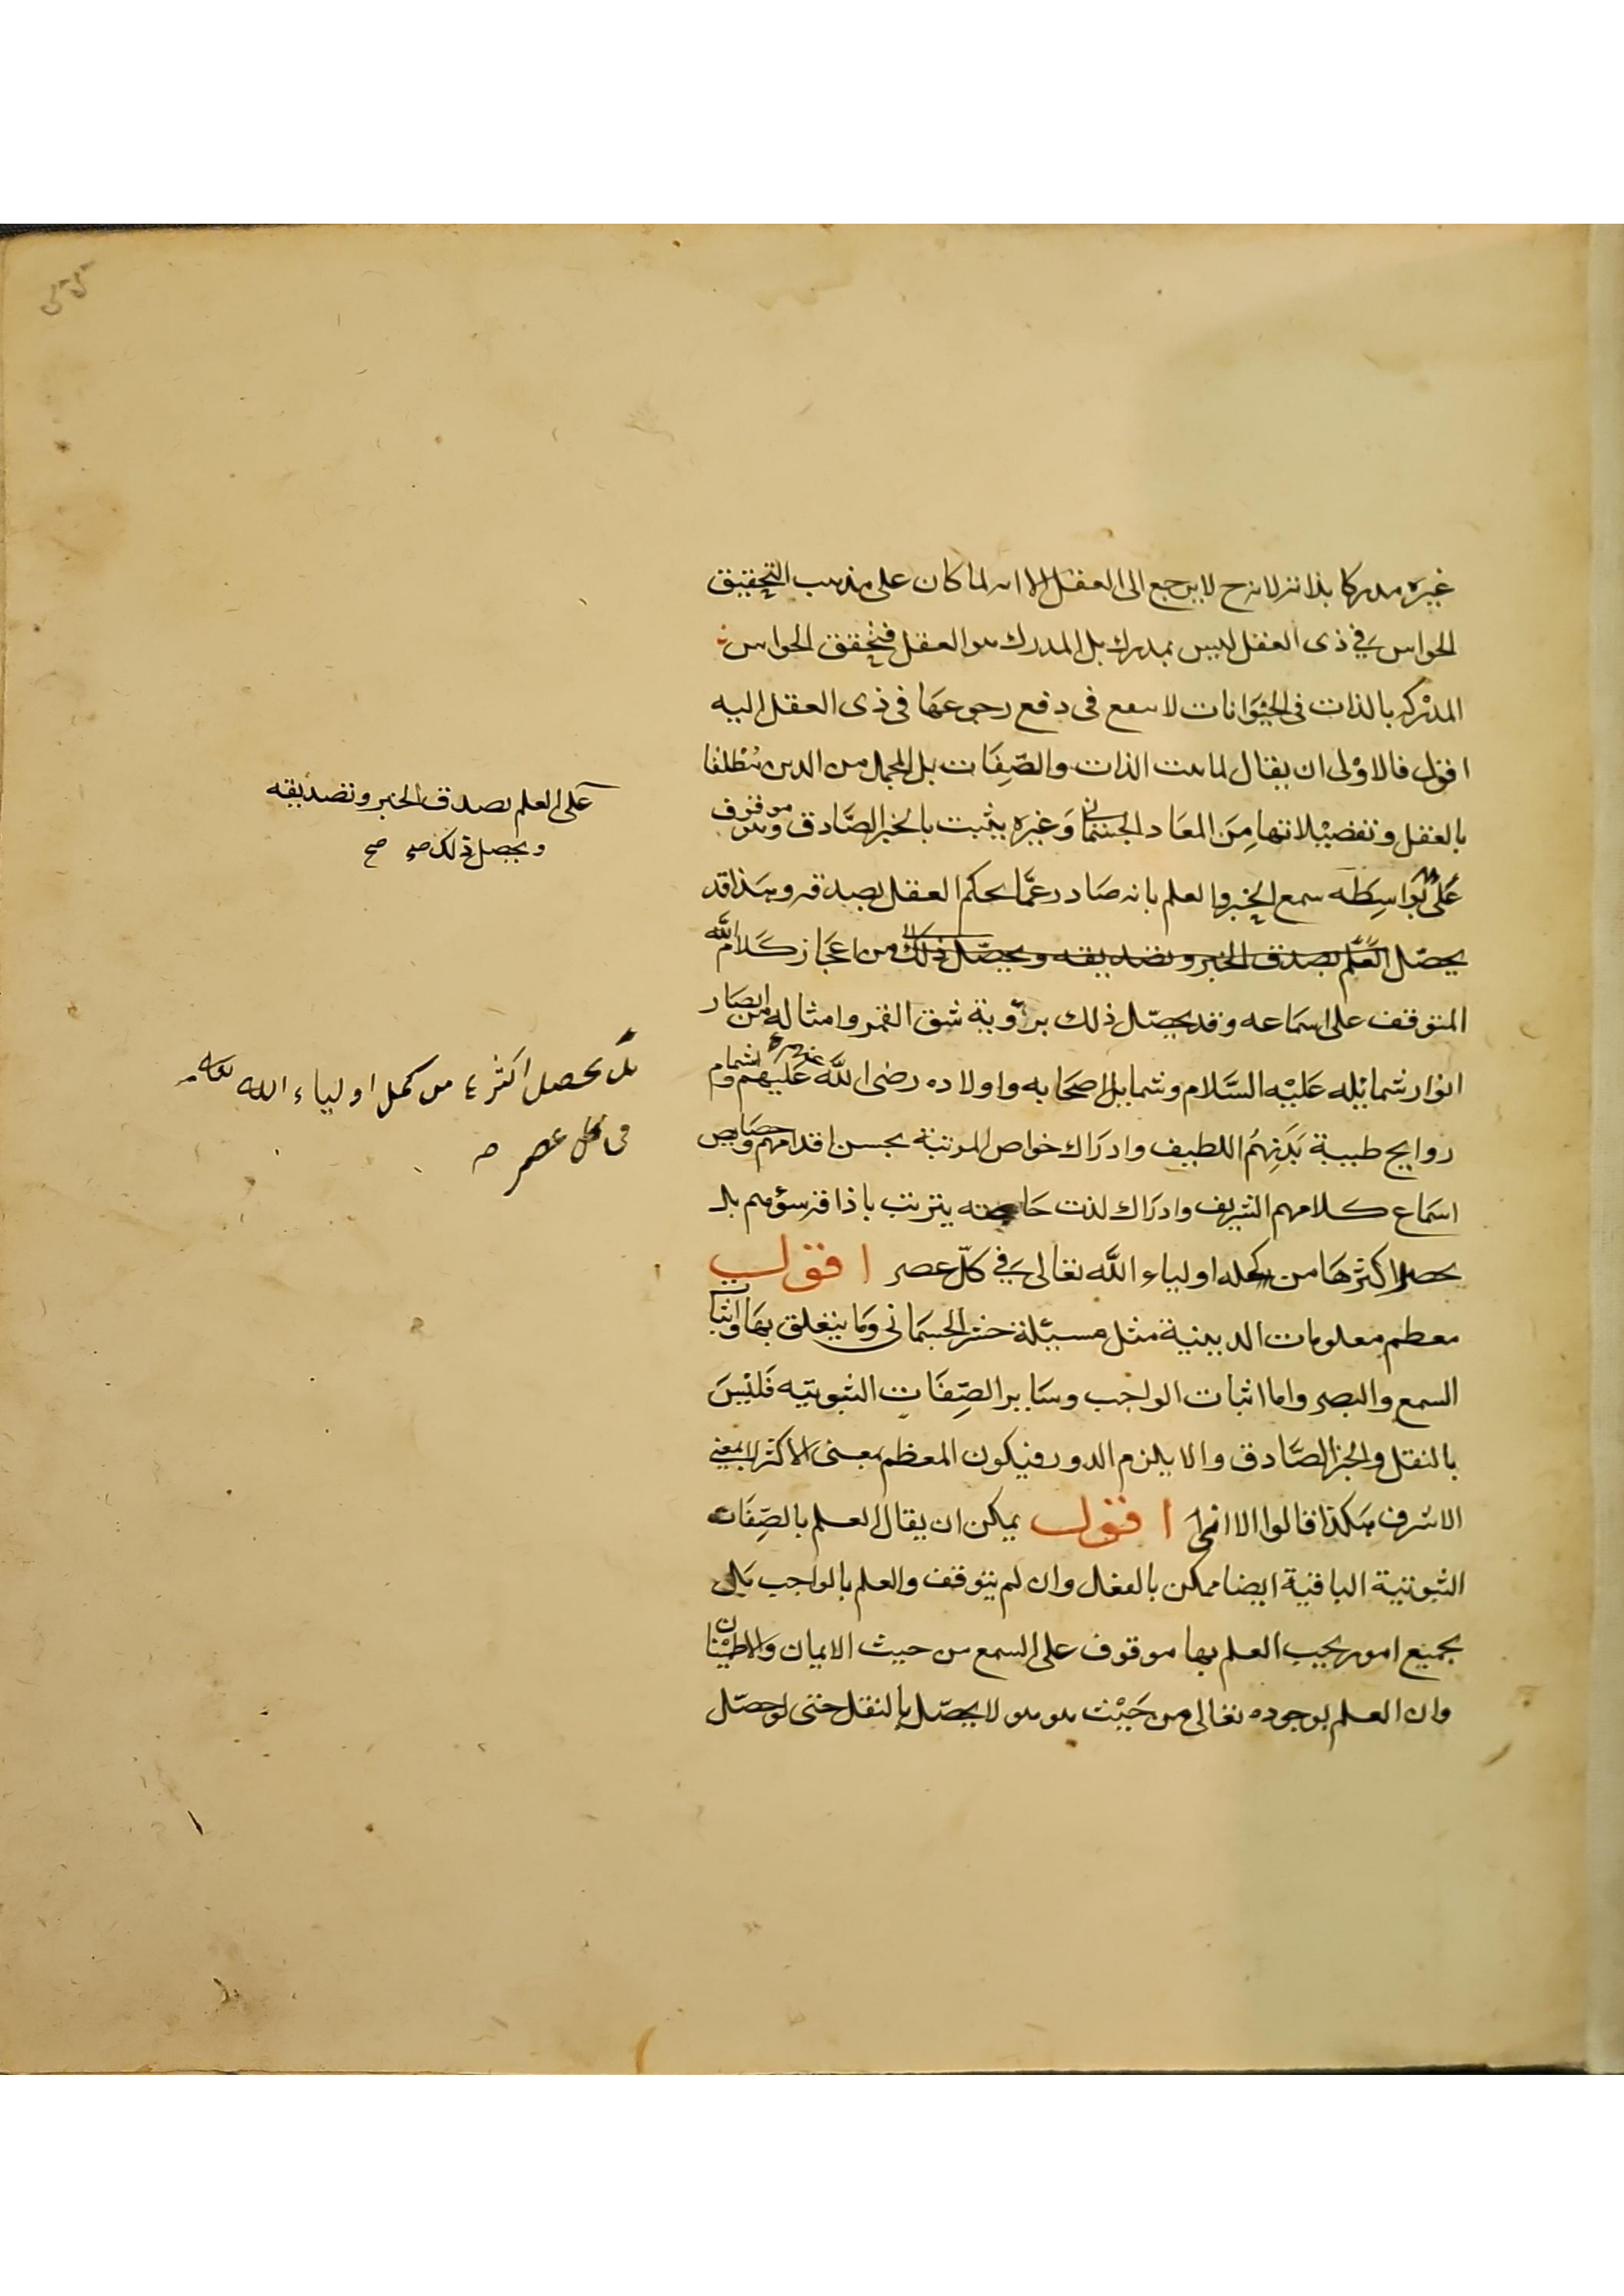 غيره مدركا بذاته لانه ح لا يرجع الى العقل الا انه لما كان على مذهب التحقيق
الحواس في ذى العقل ليس بمدرك بل المدرك هو العقل فتحقق الحواس
المدركه بالذات فى الحيوانات لا ينفع فى دفع رجوعها فى ذى العقل اليه
اقول فالاولى ان يقال لما ثبت الذات والصفات بل المجمل من الدين مطلقا
بالعقل وتفضيلاتها من المعاد الجسمانى وغيره يثبت بالخبر الصادق وهو موقوف
على بواسطه سمع الخبر والعلم بانه صادر عما يحكم العقل بصدقه وهذا قد
يحصل العلم بصدق الخبر وتصديقه ويحصل ذلك من اعجاز كلام الله
المتوقف على اسماعه وقد يحصل ذلك برؤية شق القمر وامثاله من ابصار
انوار شمائله عليه السلام وشمايل اصحابه واولاده رضى الله عليهم واشمام
روايح طيبة بدنهم اللطيف وادراك خواص المرتبة بحسن اقدامهم وخصايص
اسماع كلامهم الشريف وادراك لذت يترتب باذاقة سؤرهم بل
يحصل اكثرها من كمله اولياء الله تعالى في كل عصر اقول
معظم معلومات الدينية مثل مسيئلة حشر الجسمانى وما يتعلق بها واثبات
السمع والبصر واما اثبات الواجب وساير الصفات الثبوتيه فليس
بالنقل والخبر الصادق والا يلزم الدور فيكون المعظم بمعنى الاكثر لا بمعنى
الاشرف هكذا قالوا الا انى اقول يمكن ان يقال العلم بالصفات
الثبوتية الباقية ايضا ممكن بالعقل وان لم يتوقف والعلم بالواجب بل
بجميع امور يجب العلم بها موقوف على السمع من حيث الايمان والاطينان
وان العلم بوجوده تعالى من حيث هو هو لا يحصل بالنقل حتى لو حصل
على العلم بصدق الخبر وتصديقه
ويحصل ذلك صح صح
بل يحصل اكثرها من كمل اولياء الله تعالى
فى كل عصر